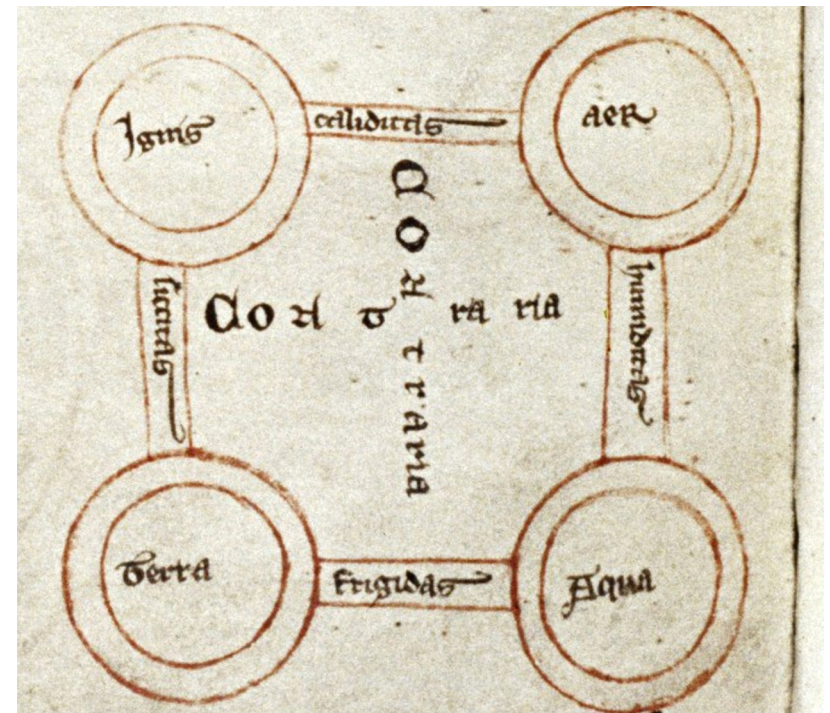 Ignis
caliditas
aer
siccitas
Contraria
Contraria
humiditas
Terra
frigidas
Aqua